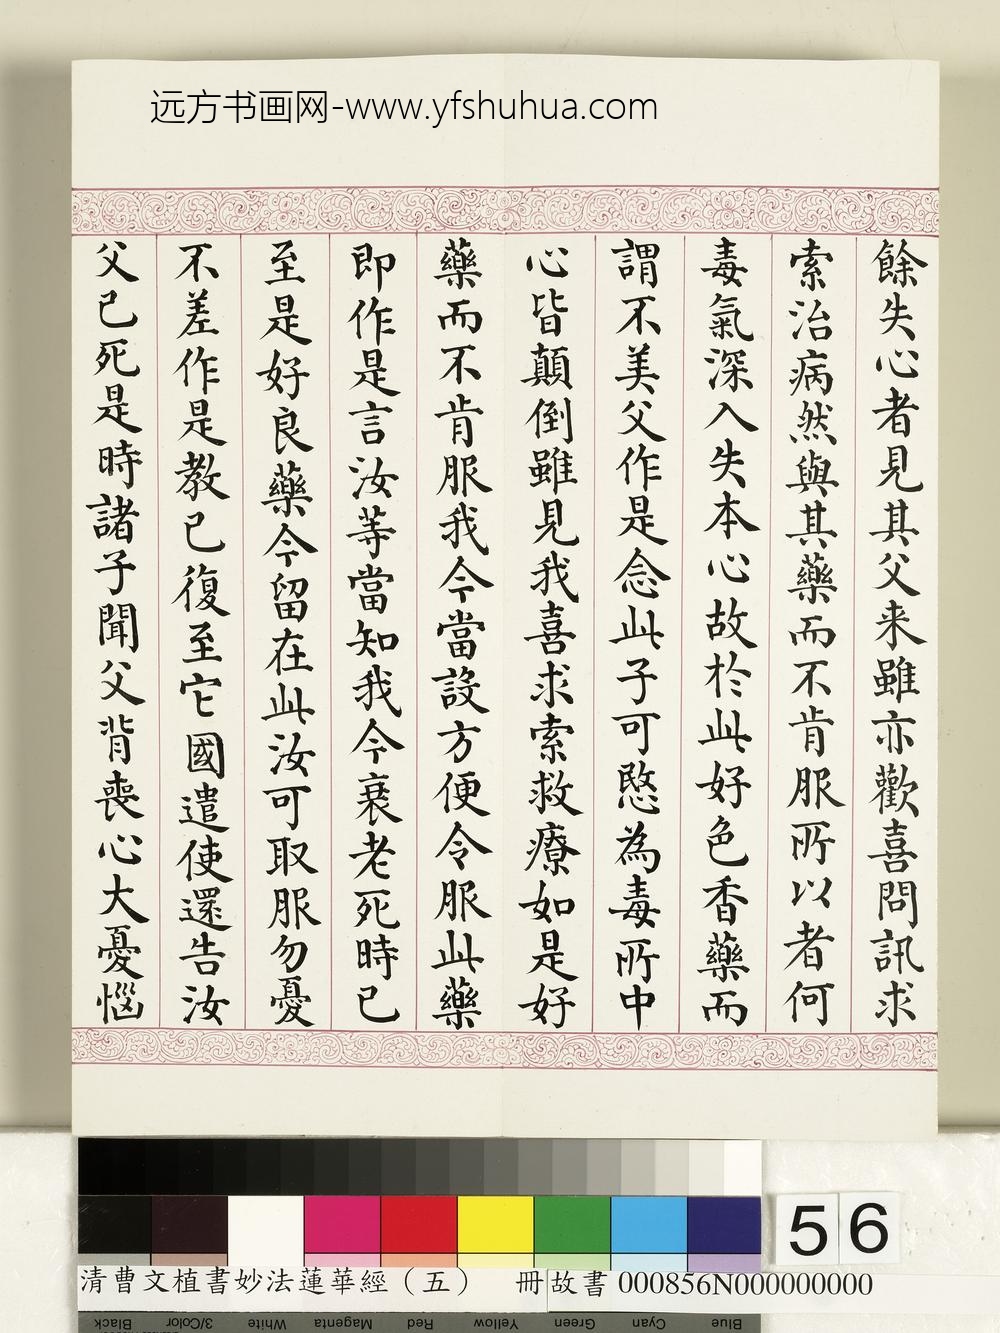 远方书画网-www.yfshuhua.com
餘失心者見其父来雖亦歡喜問訊求
索治病然與其藥而不肯服所以者何
毒氣深入失本心故於此好色香藥而
謂不美父作是念此子可愍為毒所中
心皆顛倒雖見我喜求索救療如是好
藥而不肯服我今當設方便令服此藥
即作是言汝等當知我今衰老死時已
至是好良藥今留在此汝可取服勿憂
不差作是教已復至它國遣使還告汝
父已死是時諸子聞父背喪心大憂惱
56
清曹文植書妙法蓮華經（五） 冊 故書 000856N000000000
Black 3/Color White Magenta Red Yellow Green Cyan Blue